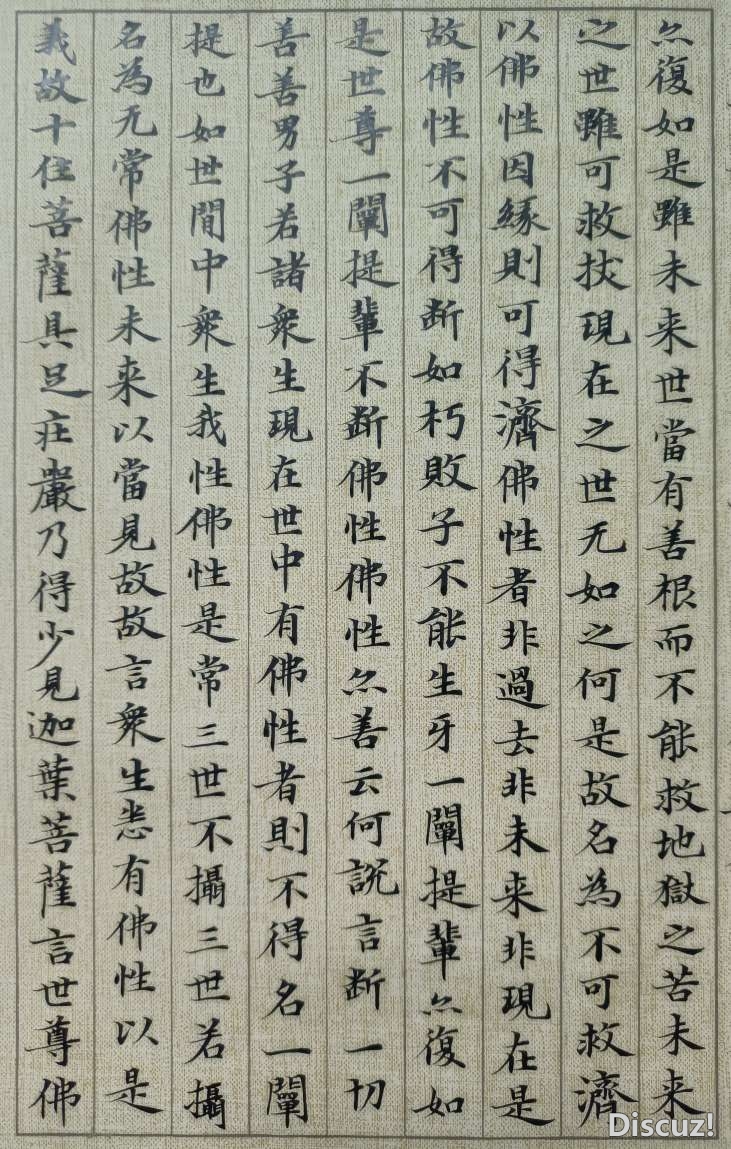 亦復如是雖未来世當有善根而不能救地獄之苦未来
之世雖可救拔現在之世无如之何是故名為不可救濟
以佛性因緣則可得濟佛性者非過去非未来非現在是
故佛性不可得断如朽敗子不能生牙一闡提輩亦復如
是世尊一闡提輩不断佛性佛性亦善云何說言断一切
善善男子若諸衆生現在世中有佛性者則不得名一闡
提也如世間中衆生我性佛性是常三世不攝三世若攝
名為无常佛性未来以當見故故言衆生悉有佛性以是
義故十住菩薩具足莊嚴乃得少見迦葉菩薩言世尊佛
Discuz!